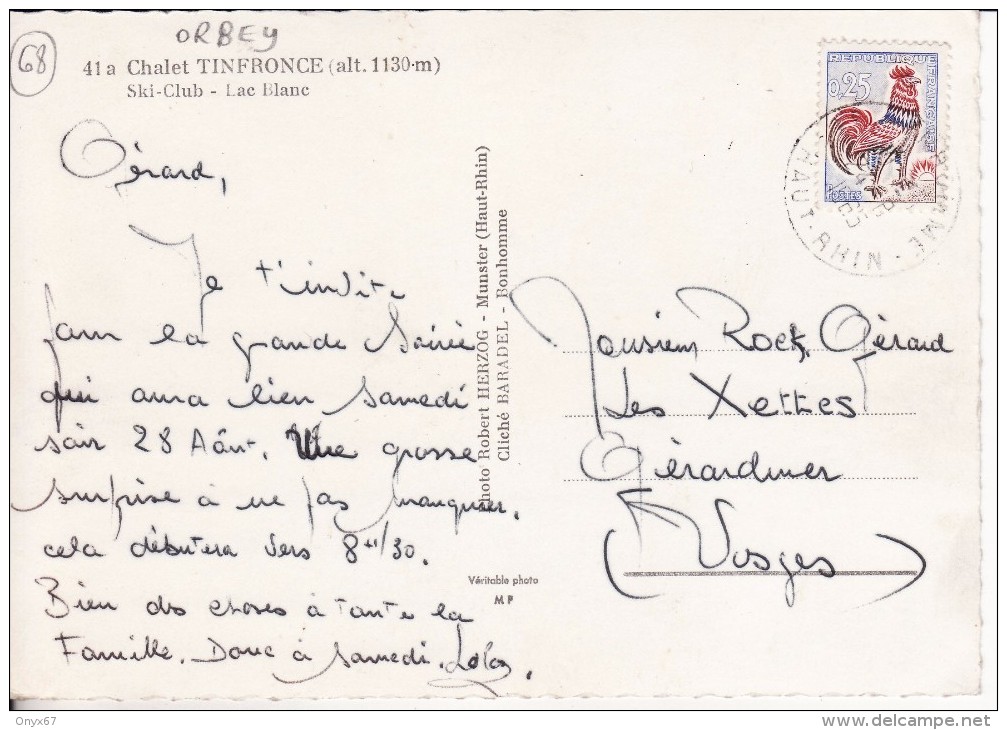 68
ORBEY
41a Chalet TINFRONCE (alt. 1130 m)
Ski-Club - Lac Blanc
REPUBLIQUE FRANÇAISE
0,25
POSTES
HAUT-RHIN
Gérard,
Je t'invite
pour la grande Soirée
qui aura lieu Samedi
soir 28 Août. Une grosse
surprise à ne pas manquer.
cela débutera vers 8 H/30.
Bien des choses à toute la
Famille. Donc à Samedi.
Photo Robert HERZOG - Munster (Haut-Rhin)
Cliché BARADEL - Bonhomme
Véritable photo
M P
Monsieur Rock, Gérard
Les Xettes
Gérardmer
(Vosges)
Onyx67
www.delcampe.net